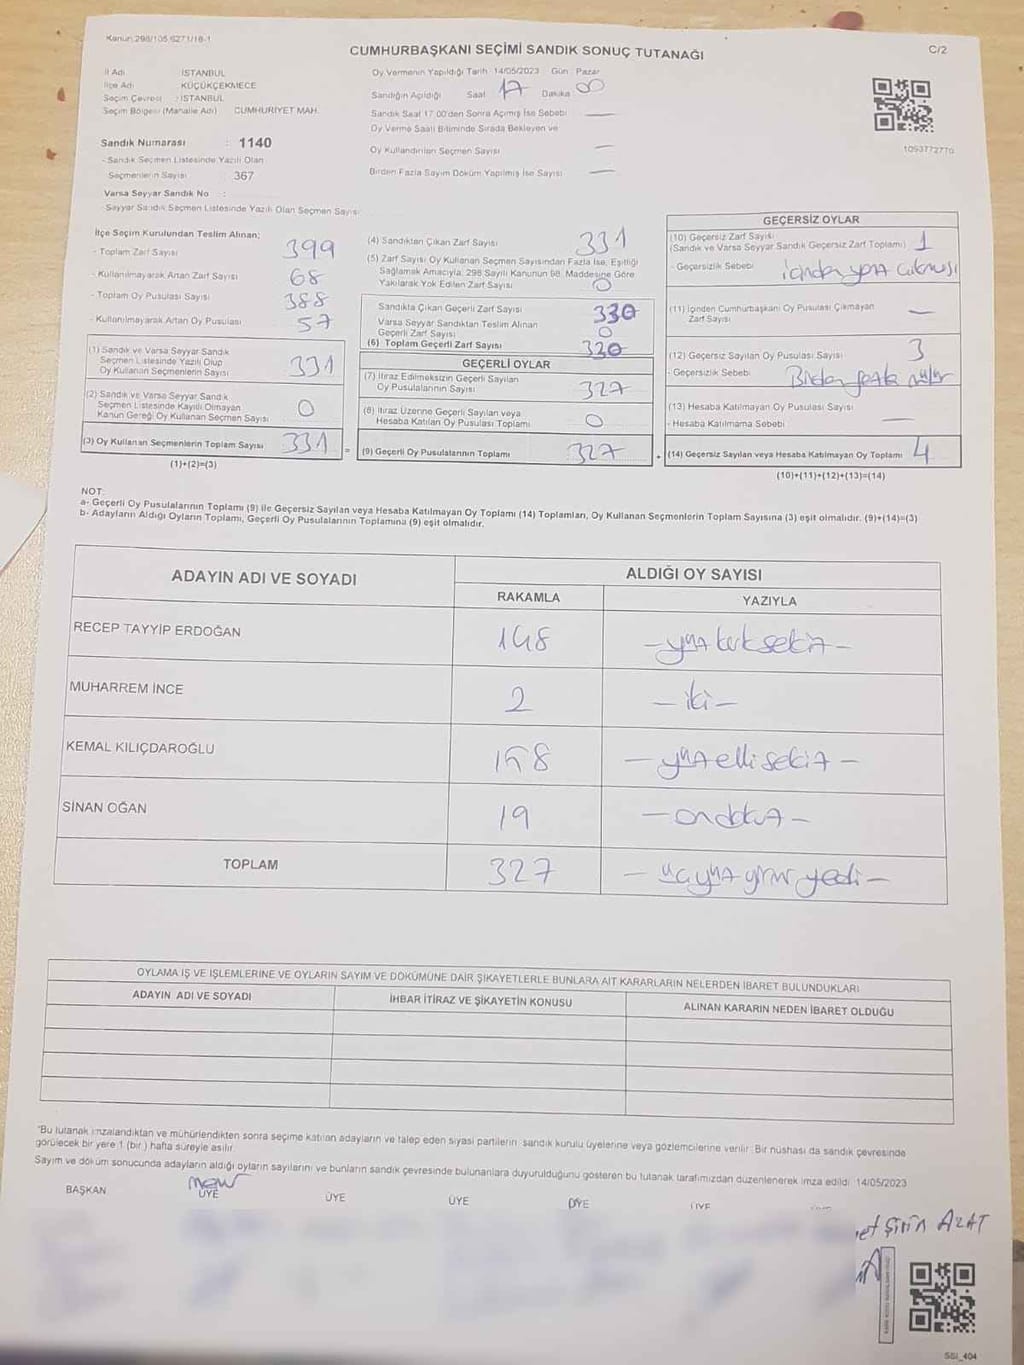 Kanun 298/105 6271/18-1
C/2
CUMHURBAŞKANI SEÇİMİ SANDIK SONUÇ TUTANAĞI
İl Adı : İSTANBUL
İlçe Adı : KÜÇÜKÇEKMECE
Seçim Çevresi : İSTANBUL
Seçim Bölgesi (Mahalle Adı) : CUMHURİYET MAH.
Sandık Numarası : 1140
- Sandık Seçmen Listesinde Yazılı Olan
Seçmenlerin Sayısı : 367
Varsa Seyyar Sandık No :
- Seyyar Sandık Seçmen Listesinde Yazılı Olan Seçmen Sayısı
Oy Vermenin Yapıldığı Tarih 14/05/2023 Gün : Pazar
Sandığın Açıldığı Saat 17 Dakika 00
Sandık Saat 17.00'den Sonra Açılmış İse Sebebi —
Oy Verme Saati Bitiminde Sırada Bekleyen ve
Oy Kullandırılan Seçmen Sayısı —
Birden Fazla Sayım Döküm Yapılmış İse Sayısı —
1093772770
İlçe Seçim Kurulundan Teslim Alınan;
- Toplam Zarf Sayısı 399
- Kullanılmayarak Artan Zarf Sayısı 68
- Toplam Oy Pusulası Sayısı 388
- Kullanılmayarak Artan Oy Pusulası 57
(1) Sandık ve Varsa Seyyar Sandık
Seçmen Listesinde Yazılı Olup
Oy Kullanan Seçmenlerin Sayısı 331
(2) Sandık ve Varsa Seyyar Sandık
Seçmen Listesinde Kayıtlı Olmayan
Kanun Gereği Oy Kullanan Seçmen Sayısı 0
(3) Oy Kullanan Seçmenlerin Toplam Sayısı 331
(1)+(2)=(3)
(4) Sandıktan Çıkan Zarf Sayısı 331
(5) Zarf Sayısı Oy Kullanan Seçmen Sayısından Fazla İse, Eşitliği
Sağlamak Amacıyla, 298 Sayılı Kanunun 98. Maddesine Göre
Yakılarak Yok Edilen Zarf Sayısı 0
Sandıkta Çıkan Geçerli Zarf Sayısı 330
Varsa Seyyar Sandıktan Teslim Alınan
Geçerli Zarf Sayısı 0
(6) Toplam Geçerli Zarf Sayısı 330
GEÇERLİ OYLAR
(7) İtiraz Edilmeksizin Geçerli Sayılan
Oy Pusulalarının Sayısı 327
(8) İtiraz Üzerine Geçerli Sayılan veya
Hesaba Katılan Oy Pusulası Toplamı 0
= (9) Geçerli Oy Pusulalarının Toplamı 327
GEÇERSİZ OYLAR
(10) Geçersiz Zarf Sayısı
(Sandık ve Varsa Seyyar Sandık Geçersiz Zarf Toplamı) 1
- Geçersizlik Sebebi
(11) İçinden Cumhurbaşkanı Oy Pusulası Çıkmayan
Zarf Sayısı —
(12) Geçersiz Sayılan Oy Pusulası Sayısı 3
- Geçersizlik Sebebi Birden fazla mühür
(13) Hesaba Katılmayan Oy Pusulası Sayısı
- Hesaba Katılmama Sebebi —
+ (14) Geçersiz Sayılan veya Hesaba Katılmayan Oy Toplamı 4
(10)+(11)+(12)+(13)=(14)
NOT:
a- Geçerli Oy Pusulalarının Toplamı (9) ile Geçersiz Sayılan veya Hesaba Katılmayan Oy Toplamı (14) Toplamları, Oy Kullanan Seçmenlerin Toplam Sayısına (3) eşit olmalıdır. (9)+(14)=(3)
b- Adayların Aldığı Oyların Toplamı, Geçerli Oy Pusulalarının Toplamına (9) eşit olmalıdır.
ADAYIN ADI VE SOYADI
ALDIĞI OY SAYISI
RAKAMLA YAZIYLA
RECEP TAYYİP ERDOĞAN 148 -yüz kırk sekiz-
MUHARREM İNCE 2 -iki-
KEMAL KILIÇDAROĞLU 158 -yüz elli sekiz-
SİNAN OĞAN 19 -on dokuz-
TOPLAM 327 -üçyüz yirmi yedi-
OYLAMA İŞ VE İŞLEMLERİNE VE OYLARIN SAYIM VE DÖKÜMÜNE DAİR ŞİKAYETLERLE BUNLARA AİT KARARLARIN NELERDEN İBARET BULUNDUKLARI
ADAYIN ADI VE SOYADI İHBAR İTİRAZ VE ŞİKAYETİN KONUSU ALINAN KARARIN NEDEN İBARET OLDUĞU
"Bu tutanak imzalandıktan ve mühürlendikten sonra seçime katılan adayların ve talep eden siyasi partilerin, sandık kurulu üyelerine veya gözlemcilerine verilir. Bir nüshası da sandık çevresinde
görülecek bir yere 1 (bir ) hafta süreyle asılır.
Sayım ve döküm sonucunda adayların aldığı oyların sayılarını ve bunların sandık çevresinde bulunanlara duyurulduğunu gösteren bu tutanak tarafımızdan düzenlenerek imza edildi. 14/05/2023
BAŞKAN ÜYE ÜYE ÜYE ÜYE
et Şirin AZAT
SSI_404